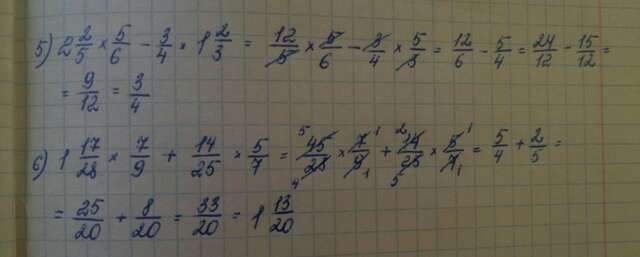 5) 2 2/5 × 5/6 − 3/4 × 1 2/3 = 12/5 × 5/6 − 3/4 × 5/3 = 12/6 − 5/4 = 24/12 − 15/12 =
= 9/12 = 3/4
6) 1 17/28 × 7/9 + 14/25 × 5/7 = 45/28 × 7/9 + 14/25 × 5/7 = 5/4 + 2/5 =
= 25/20 + 8/20 = 33/20 = 1 13/20